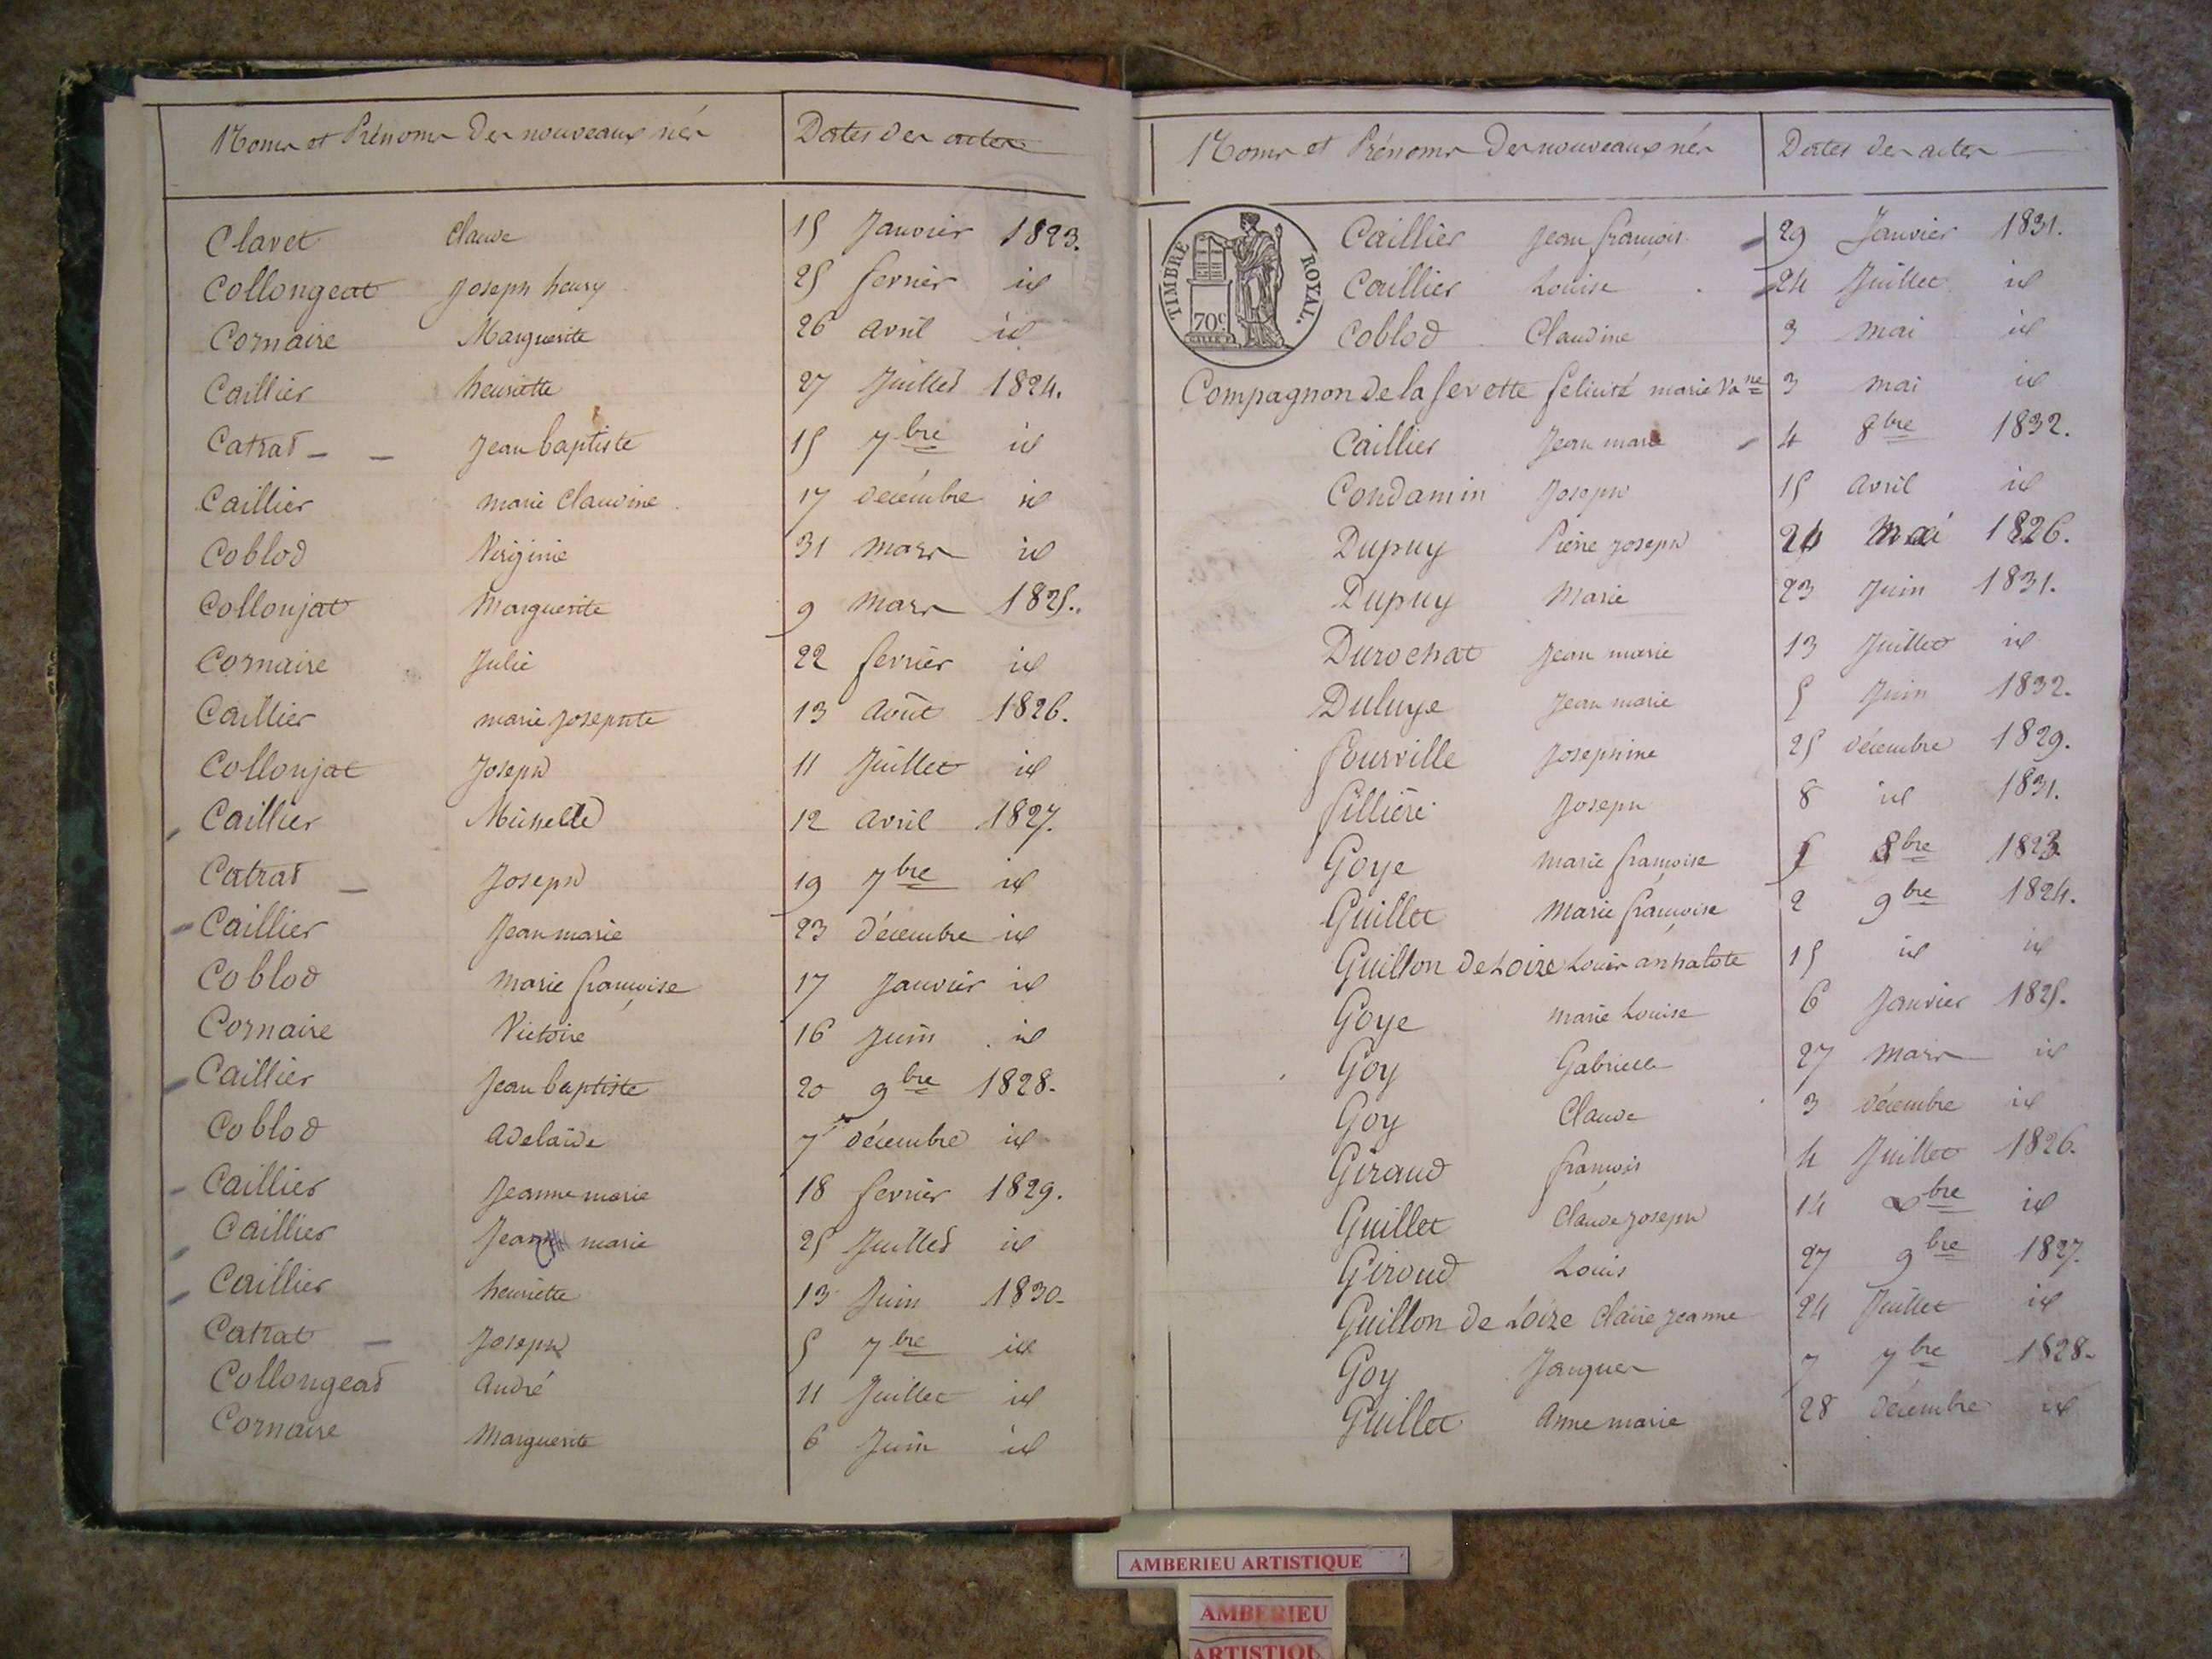 Noms et Prénoms des nouveaux nés Dates des actes
Clavet Claude 15 Janvier 1823.
Collongeat Joseph henry 25 fevrier id
Cornaire Marguerite 26 avril id
Caillier henriette 27 Juillet 1824.
Catrat Jean baptiste 15 7bre id
Caillier marie Claudine 17 décembre id
Coblod Virginie 31 mars id
Collonjat Marguerite 9 mars 1825.
Cornaire Julie 22 fevrier id
Caillier marie Josephte 13 Août 1826.
Collonjat Joseph 11 Juillet id
Caillier Michelle 12 avril 1827.
Catrat Joseph 19 7bre id
Caillier Jean marie 23 décembre id
Coblod Marie françoise 17 Janvier id
Cornaire Victoire 16 Juin id
Caillier Jean baptiste 20 9bre 1828.
Coblod adelaïde 7 décembre id
Caillier Jeanne marie 18 fevrier 1829.
Caillier marie 25 Juillet id
Caillier henriette 13 Juin 1830.
Catrat Joseph 5 7bre id
Collongeat André 11 Juillet id
Cornaire Marguerite 6 Juin id
Noms et Prénoms des nouveaux nés Dates des actes
TIMBRE ROYAL.
70c
Caillier Jean françois 29 Janvier 1831.
Caillier Louise 24 Juillet id
Coblod Claudine 3 mai id
Compagnon de la fevette felicité marie 3 mai id
Caillier Jean marie 4 8bre 1832.
Condamin Joseph 15 avril id
Dupuy Pierre Joseph 24 Mai 1826.
Dupuy Marie 23 Juin 1831.
Durochat Jean marie 13 Juillet id
Duluye Jean marie 5 Juin 1832.
fourville Josephine 25 décembre 1829.
fillière Joseph 8 id 1831.
Goye marie françoise 5 8bre 1823
Guillet Marie françoise 2 9bre 1824.
Guillon de Loize Louis anhalote 15 id id
Goye marie Louise 6 Janvier 1825.
Goy Gabrielle 27 mars id
Goy Claude 3 décembre id
Giraud françois 4 Juillet 1826.
Guillet Claude Joseph 14 8bre id
Giroud Louis 27 9bre 1827.
Guillon de Loize Claire Jeanne 24 Juillet id
Goy Jacques 7 7bre 1828.
Guillet Anne marie 28 décembre id
AMBERIEU ARTISTIQUE
AMBERIEU
ARTISTIQU